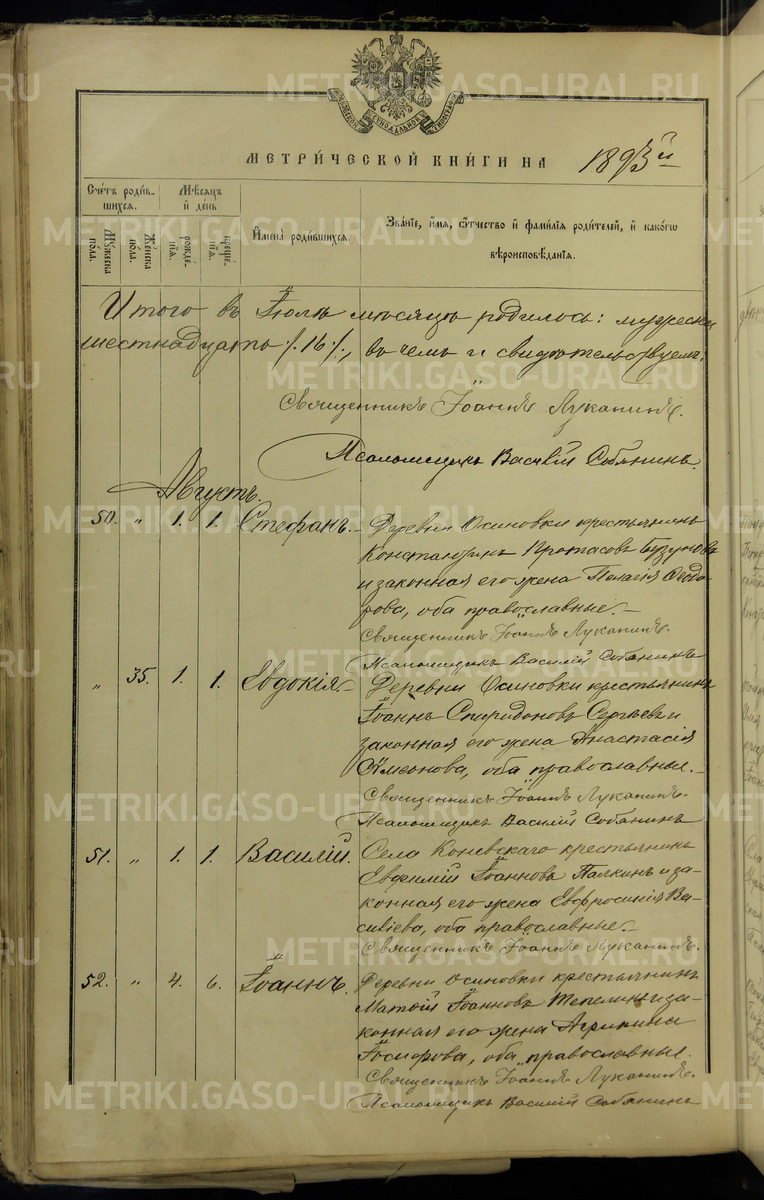 МОСКОВСКОЙ СѴНОДАЛЬНОЙ ТИПОГРАФІИ
МЕТРИ́ЧЕСКОЙ КНИ́ГИ НА 1893й
Сче́тъ роди́в-
шихся.
Мѣ́сяцъ
и҆ де́нь
Му́жеска
по́ла.
Же́нска
по́ла.
рожде́-
нїѧ.
креще́-
нїѧ.
И҆мена̀ роди́вшихся.
Зва́нїе, и҆́мѧ, ѻ҆́тчество и҆ фами́лїѧ роди́телей, и҆ како́гѡ
вѣроисповѣ́данїѧ.
Итого въ Іюлѣ мѣсяцѣ родилось: мужеска
шестнадцать /.16./, въ чемъ и свидѣтельствуемъ:
Священникъ Іоаннъ Луканинъ.
Псаломщикъ Василій Собянинъ.
Августъ.
50. „ 1. 1. Стефанъ. Деревни Осиновки крестьянинъ
Константинъ Протасовъ Бузуновъ
и законная его жена Пелагія Ѳеодо-
рова, оба православные.—
Священникъ Іоаннъ Луканинъ.
Псаломщикъ Василій Собянинъ
„ 35. 1. 1. Евдокія.— Деревни Осиновки крестьянинъ
Іоаннъ Спиридоновъ Сергѣевъ и
законная его жена Анастасія
Симеонова, оба православные.—
Священникъ Іоаннъ Луканинъ.
Псаломщикъ Василій Собянинъ
51. „ 1. 1. Василій. Села Коневскаго крестьянинъ
Евѳимій Іоанновъ Палкинъ и за-
конная его жена Евфросинія Ва-
силіева, оба православные.—
Священникъ Іоаннъ Луканинъ.
52. „ 4. 6. Іоаннъ. Деревни Осиновки крестьянинъ
Матѳій Іоанновъ Тепелинъ и за-
конная его жена Агрипина
Іосифова, оба православные.
Священникъ Іоаннъ Луканинъ.
Псаломщикъ Василій Собянинъ
METRIKI.GASO-URAL.RU